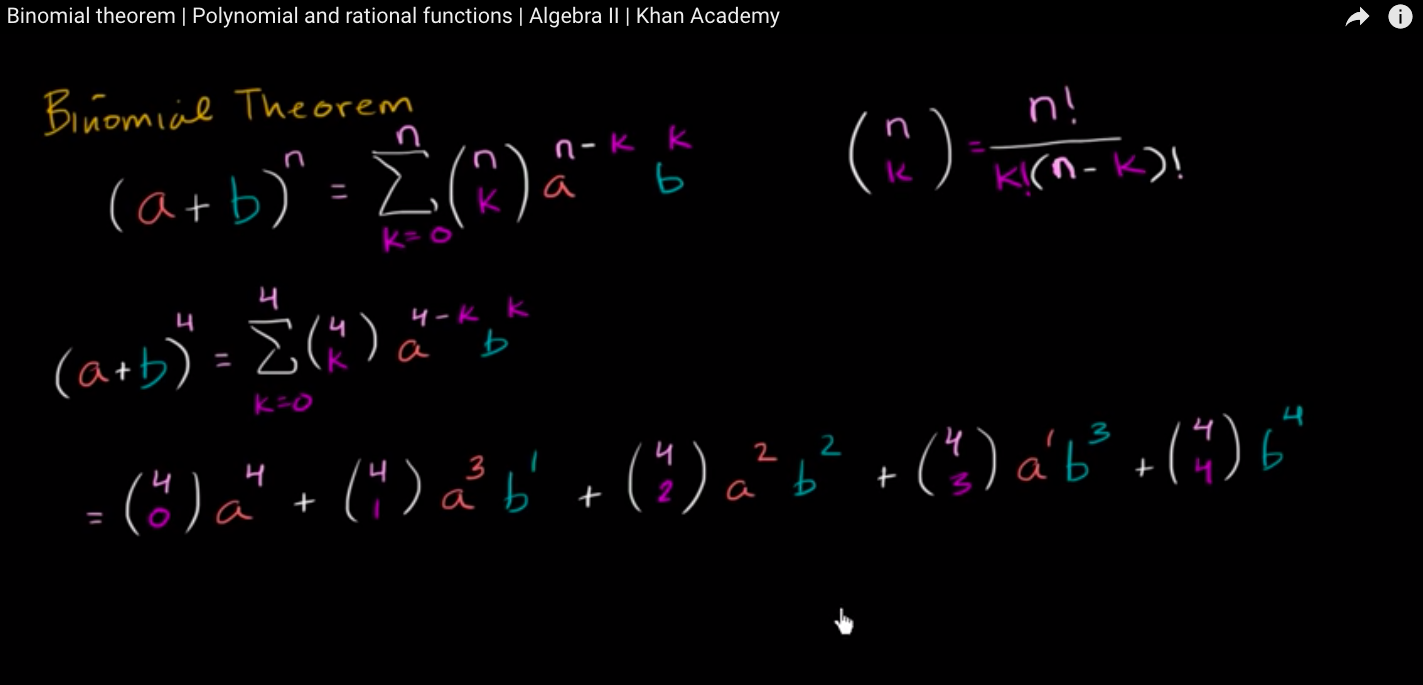 Binomial theorem | Polynomial and rational functions | Algebra II | Khan Academy
Binomial Theorem
(a + b)ⁿ = ∑ₖ₌₀ⁿ (n k) aⁿ⁻ᵏ bᵏ
(n k) = n! / k!(n - k)!
(a+b)⁴ = ∑ₖ₌₀⁴ (4 k) a⁴⁻ᵏ bᵏ
= (4 0) a⁴ + (4 1) a³ b¹ + (4 2) a² b² + (4 3) a¹ b³ + (4 4) b⁴